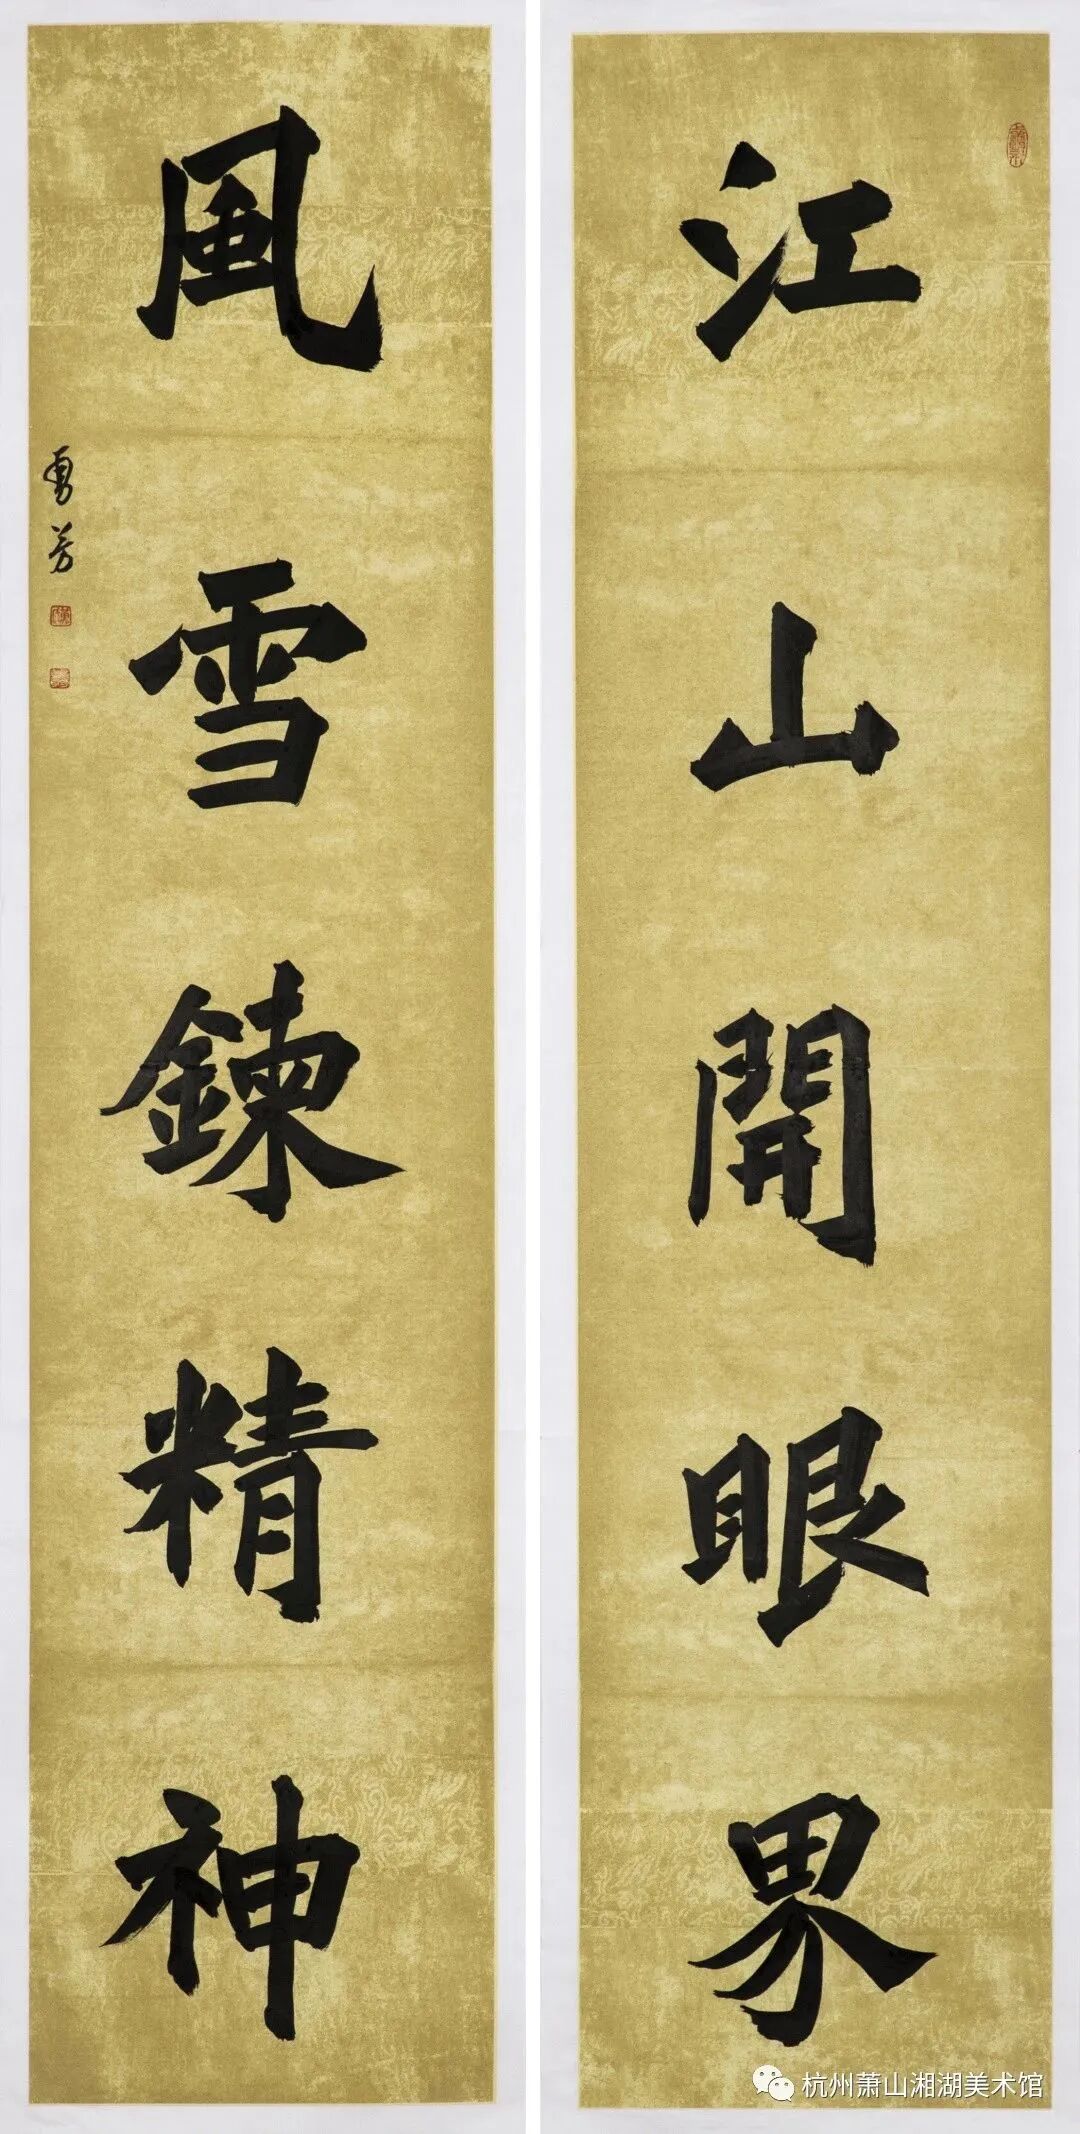 江山開眼界
風雪鍊精神
勇芳
杭州萧山湘湖美术馆